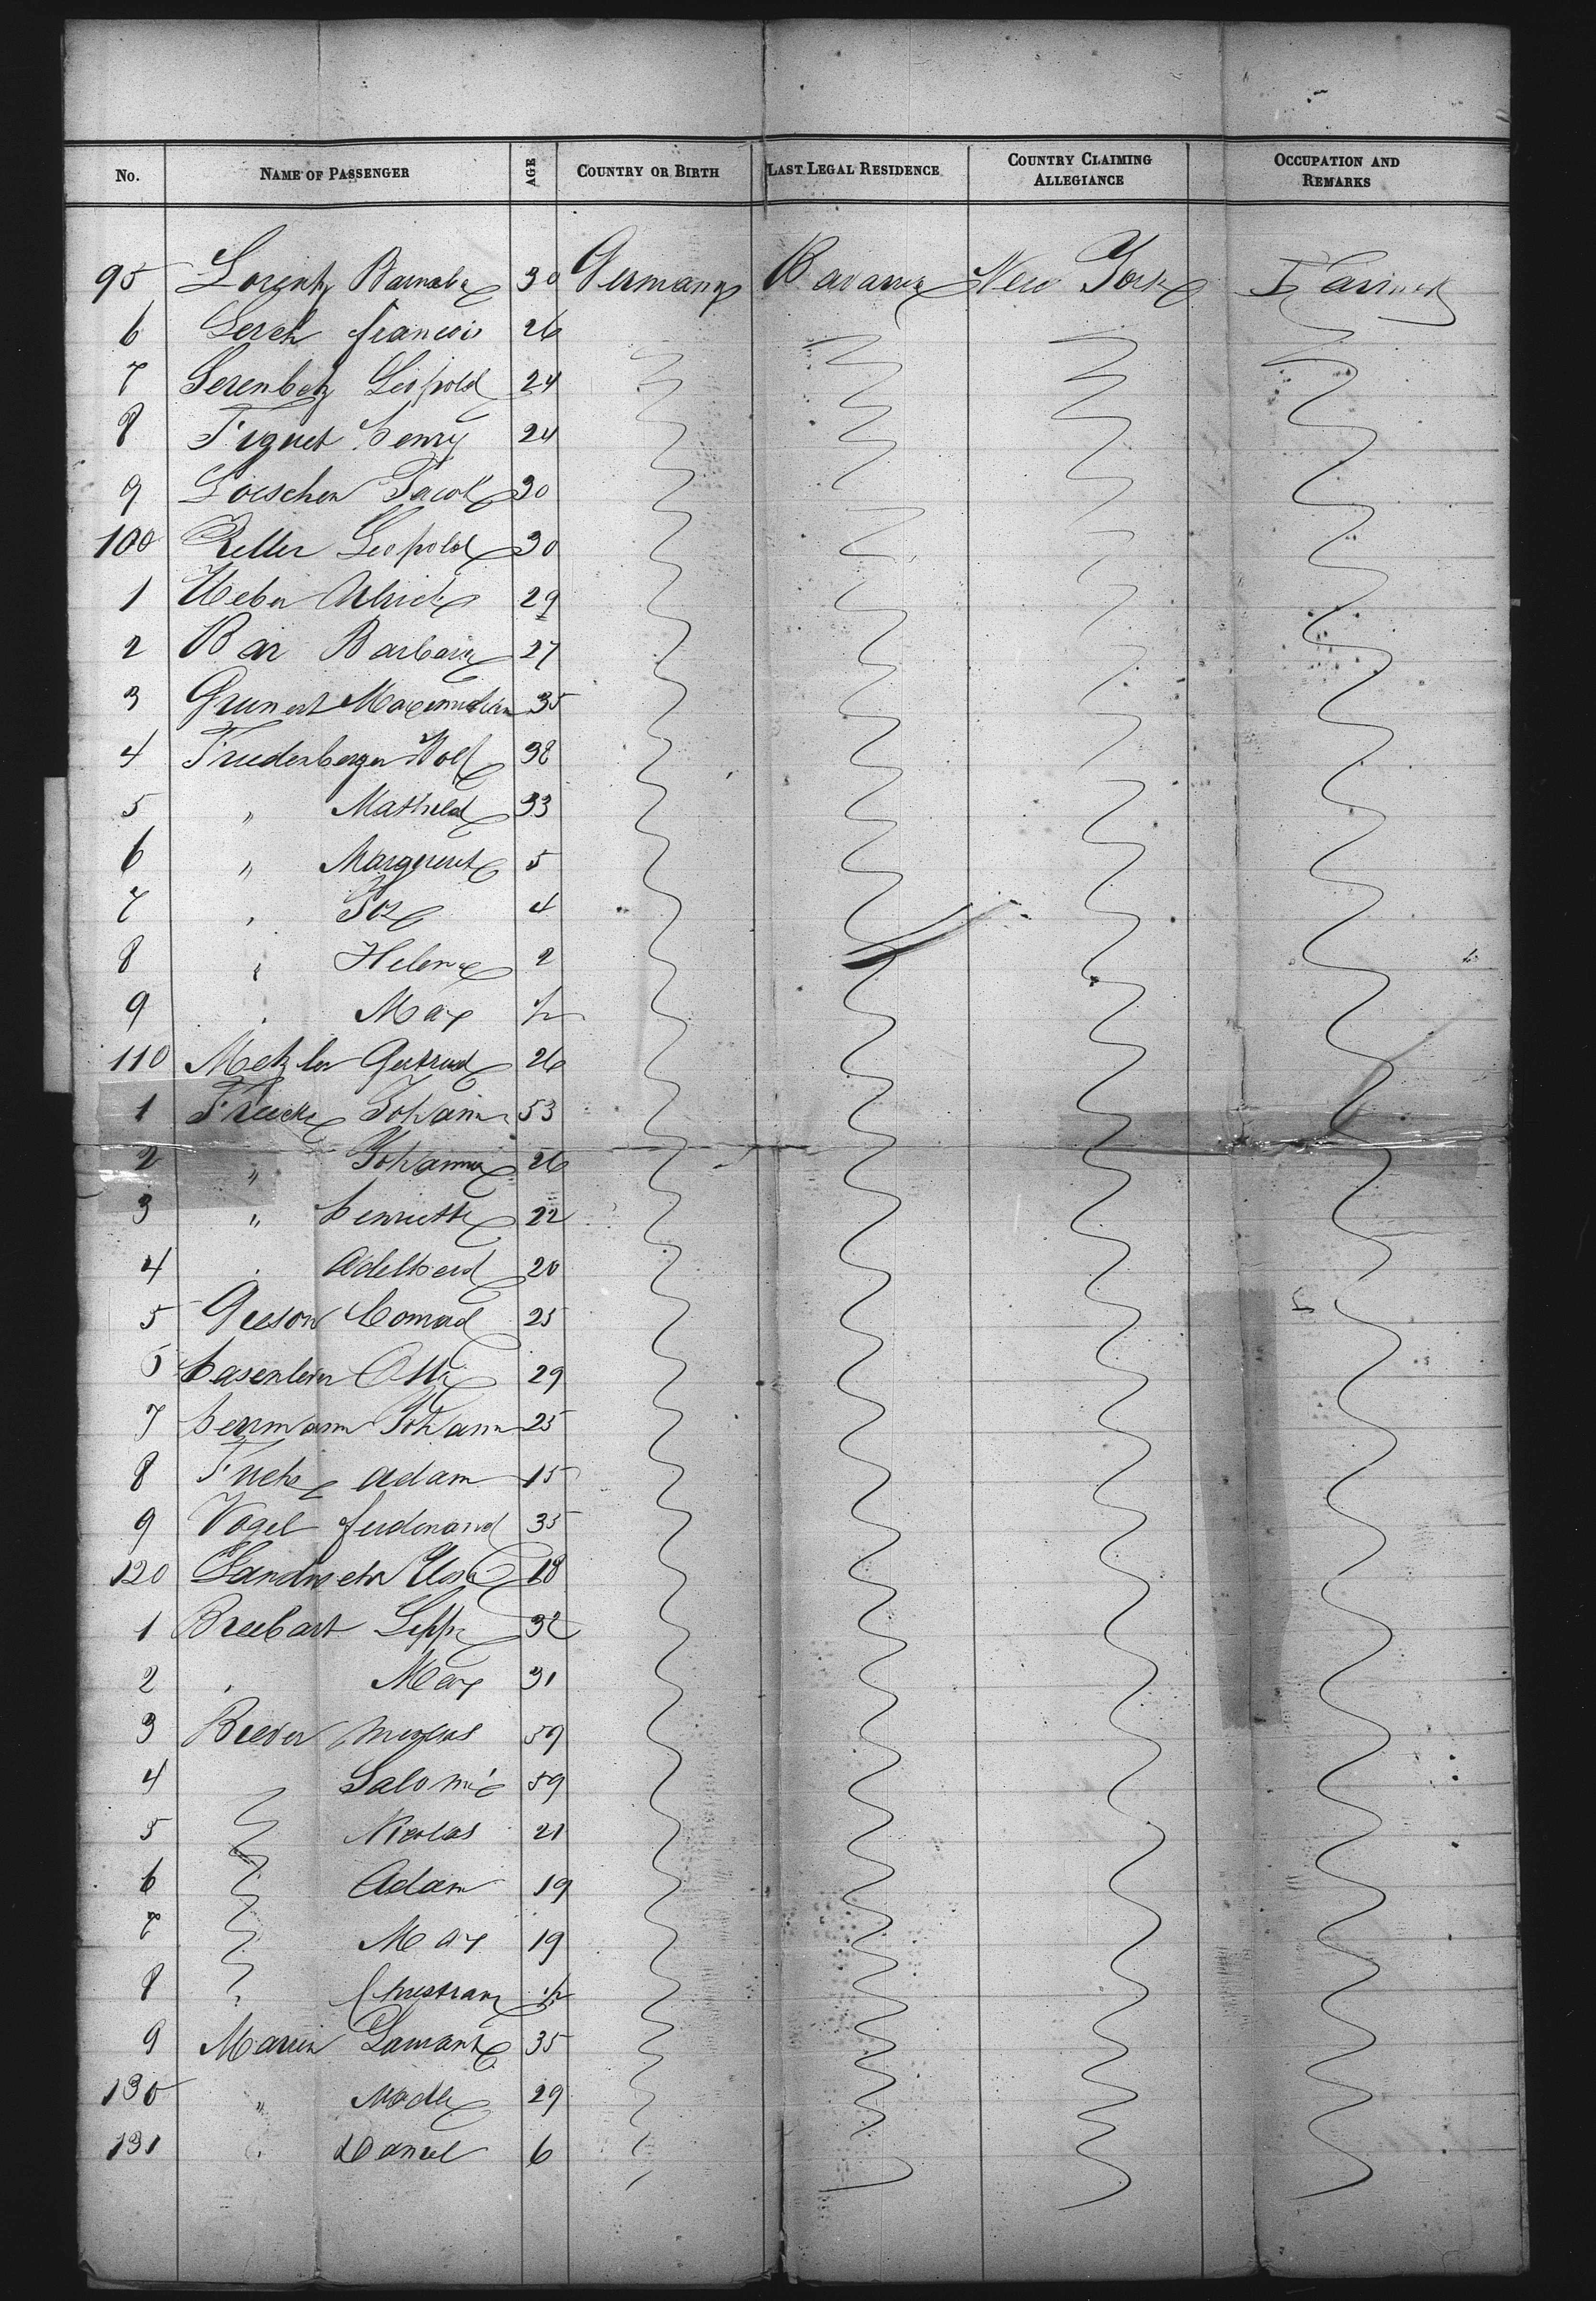 No. NAME OF PASSENGER AGE COUNTRY OR BIRTH LAST LEGAL RESIDENCE COUNTRY CLAIMING ALLEGIANCE OCCUPATION AND REMARKS
95 Lorentz Barnaba 30 Germany Bavaria New York
6 Lerch francois 26
7 Leopold 24
8 henry 24
9 Loescher Jacob 30
100 Zeller Leopold 30
1 Weber Ulrich 29
2 Bär Barbara 27
3 Grunert Maximilian 35
4 Friedenberger Wolf 38
5 " Mathild 33
6 " Margueret 5
7 " 4
8 " Helena 2
9 " Max
110 Metzler Gertrud 26
1 Johann 53
2 " Johanna 26
3 " henriette 22
4 " Adelheid 20
5 Conrad 25
6 hasenlever Otto 29
7 herrmann Johann 25
8 Fuchs Adam 15
9 Vogel ferdinand 35
120 Landwehr 18
1 Breebart 32
2 " Max 31
3 Nicolas 59
4 Salomé 59
5 Nicolas 21
6 Adam 19
7 Max 19
8 " Christian
9 35
130 " 29
131 " Daniel 6